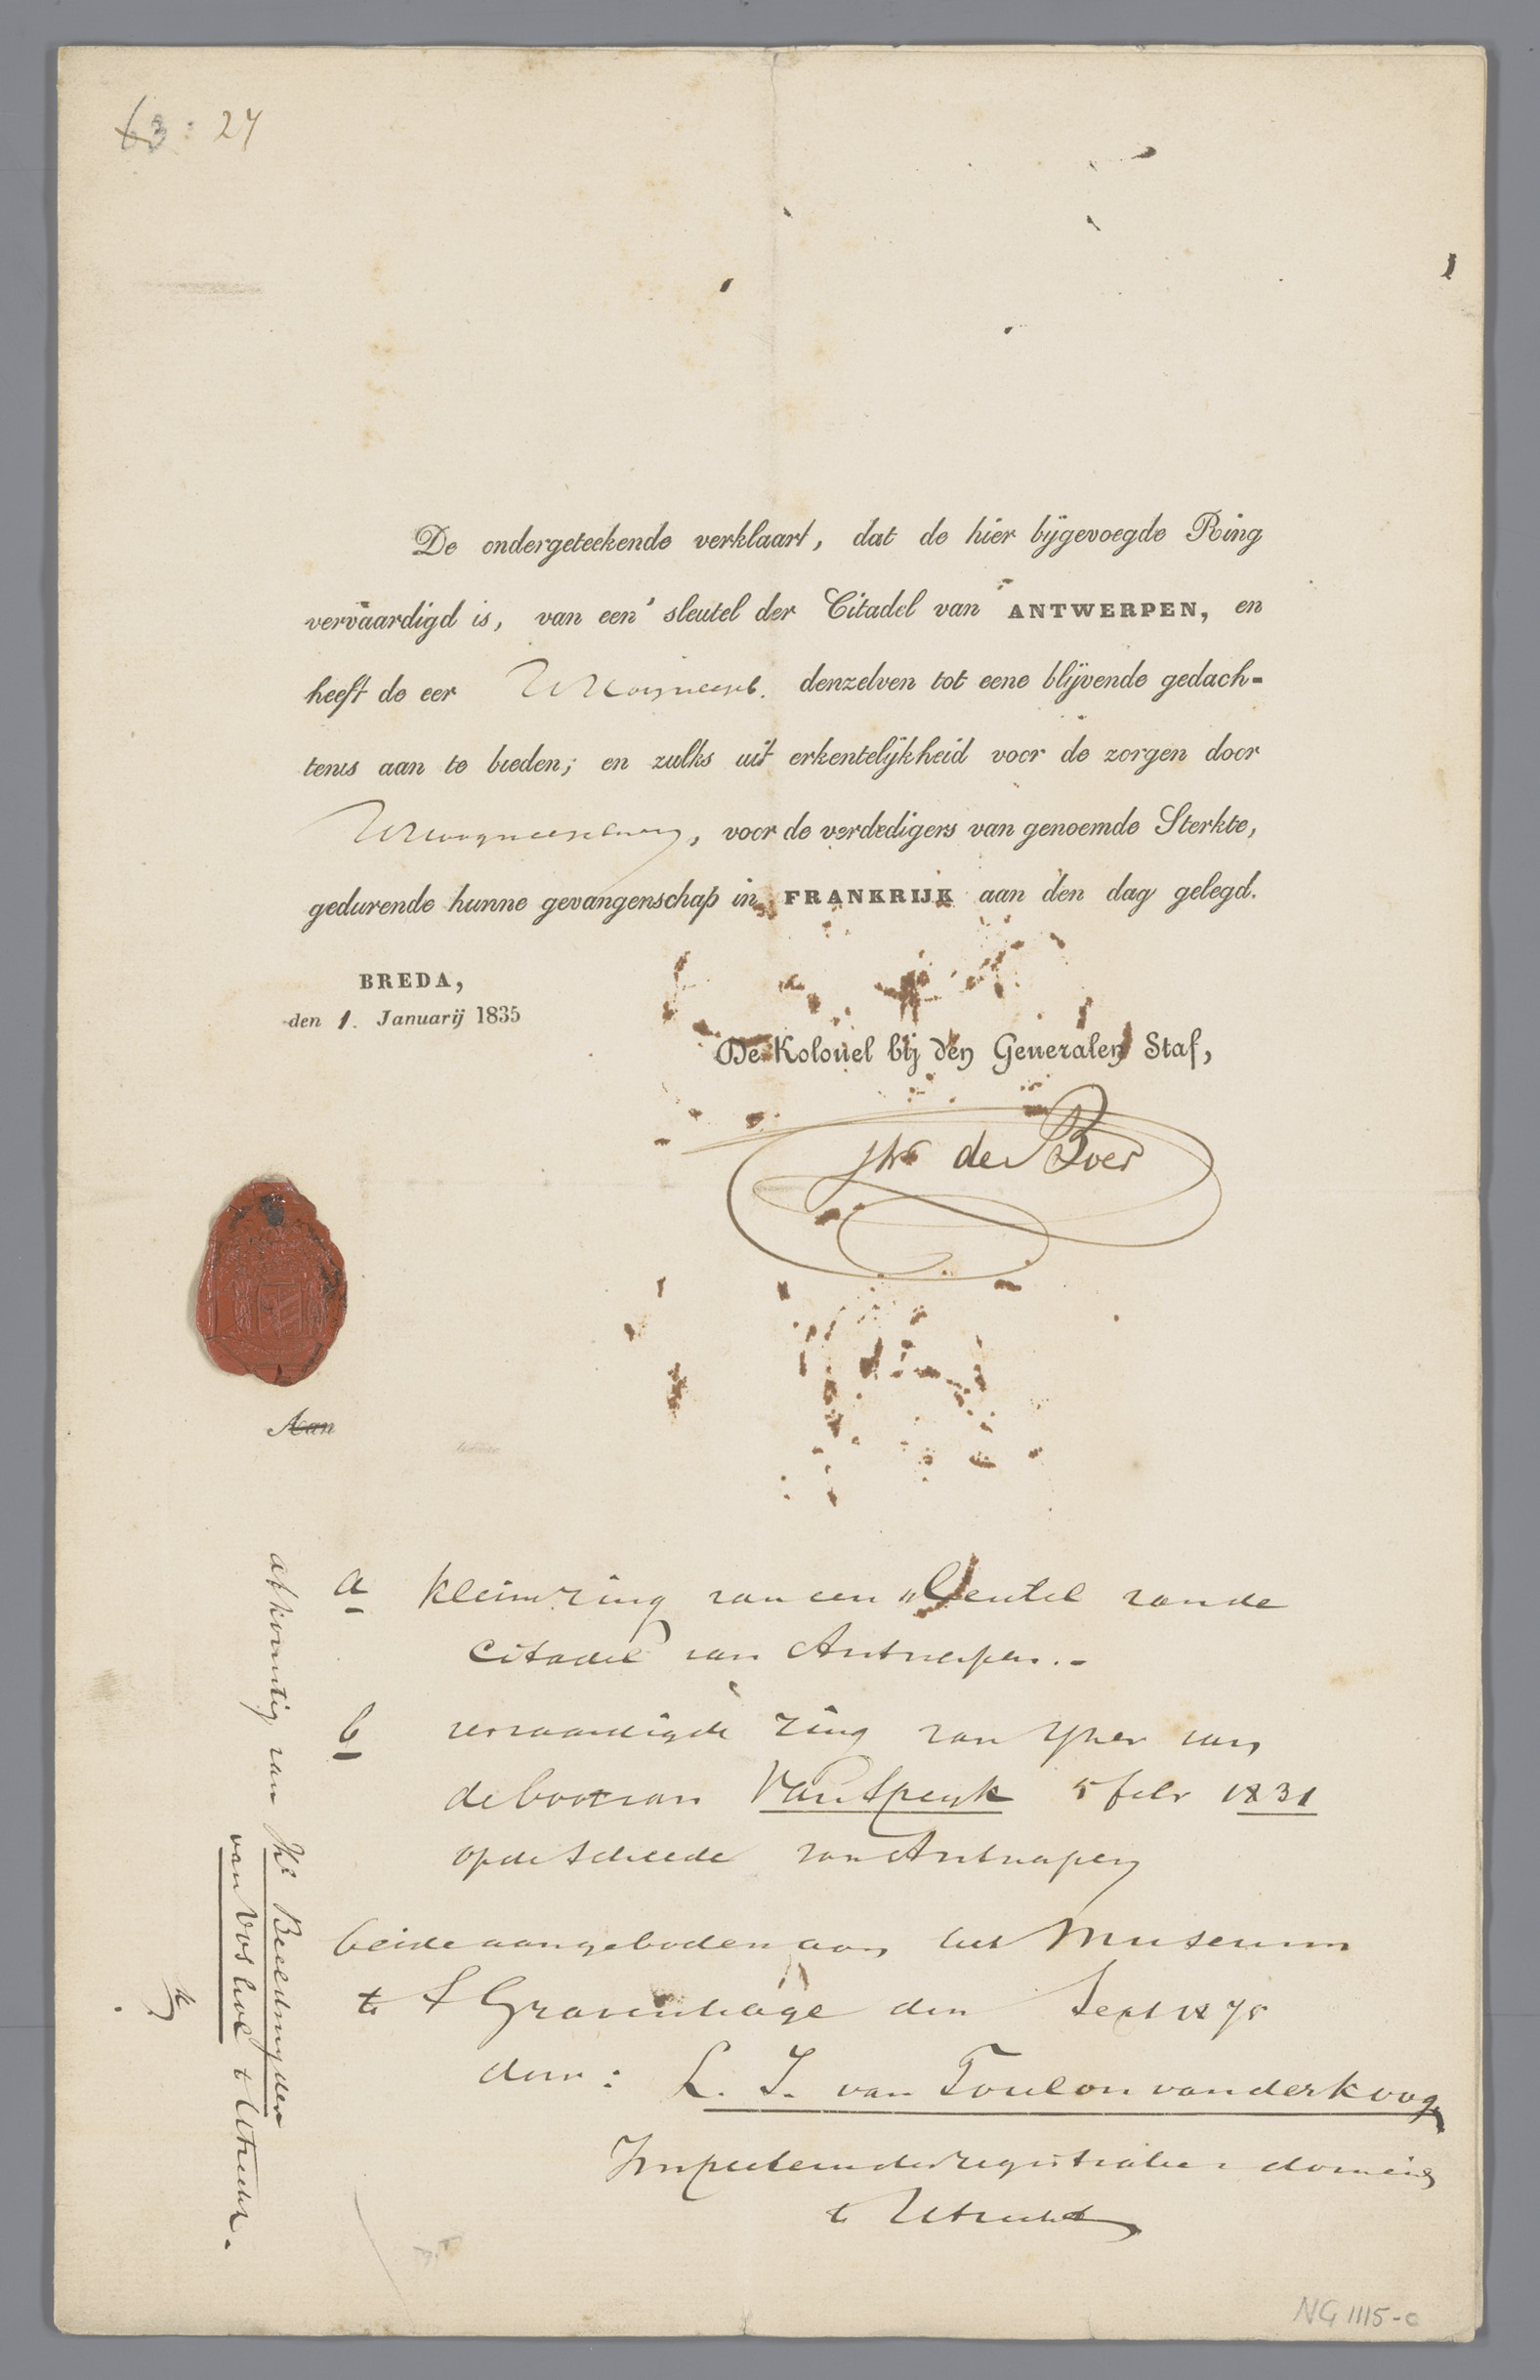 63: 24
De ondergeteekende verklaart, dat de hier bijgevoegde Ring
vervaardigd is, van een' sleutel der Citadel van ANTWERPEN, en
heeft de eer denzelven tot eene blijvende gedach-
tenis aan te bieden; en zulks uit erkentelijkheid voor de zorgen door
, voor de verdedigers van genoemde Sterkte,
gedurende hunne gevangenschap in FRANKRIJK aan den dag gelegd.
BREDA,
den 1. Januarij 1835
De Kolonel bij den Generalen Staf,
de Boer
Aan
a klein ring van een sleutel van de
Citadel van Antwerpen.-
b vervaardigde ring van yzer van
de boot van Van Speyk 5 febr 1831
op de Schelde van Antwerpen
beide aangeboden aan het Museum
te S Gravenhage den Sept 1875
door: L. J. van Toulon van der Koog
Inspecteur der registratie domein
te Utrecht
afkomstig van Beeldsnyder
van Voshol te Utrecht.
NG 1115-c